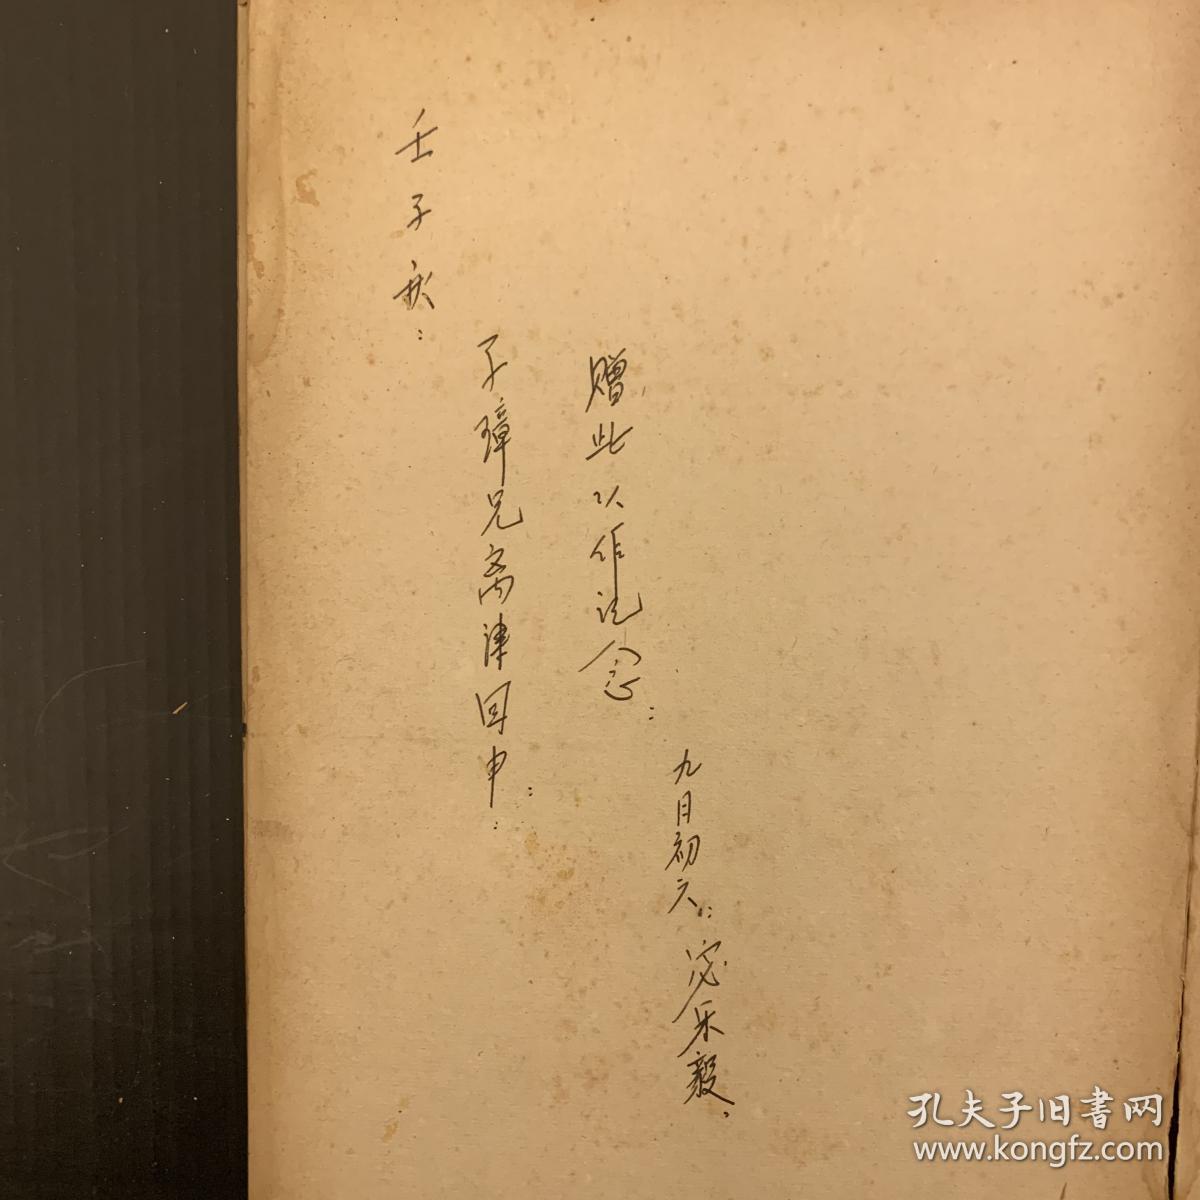 壬子秋：
子璋兄离津回申：
赠此以作记念：
九月初六：宓乐毅
孔夫子旧書网
www.kongfz.com